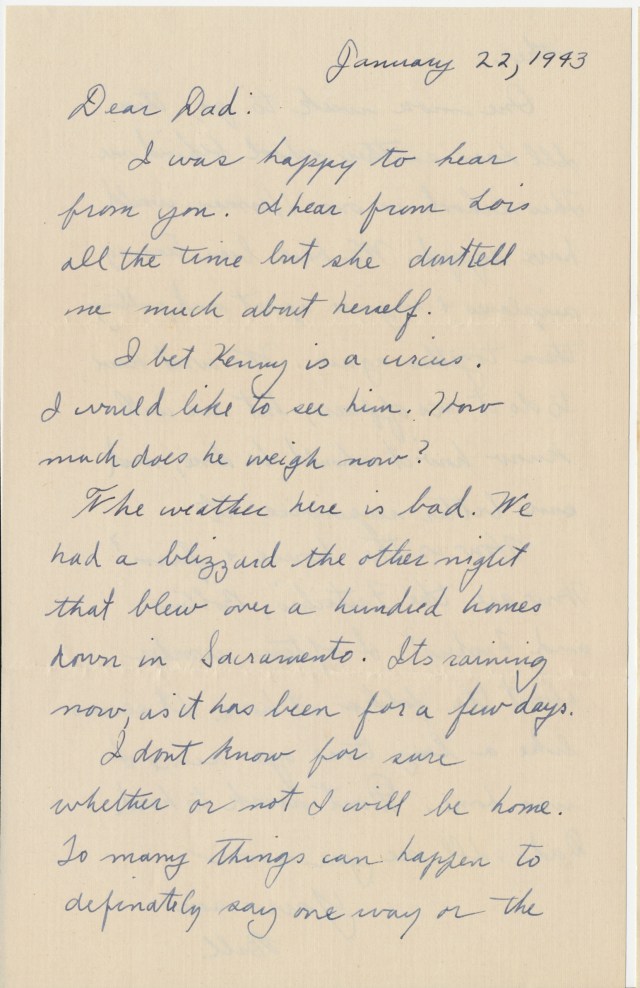 January 22, 1943
Dear Dad:
I was happy to hear
from you. I hear from Lois
all the time but she dont tell
me much about herself.
I bet Kenny is a circus.
I would like to see him. How
much does he weigh now?
The weather here is bad. We
had a blizzard the other night
that blew over a hundred homes
down in Sacramento. Its raining
now, as it has been for a few days.
I dont know for sure
whether or not I will be home.
So many things can happen to
definately say one way or the